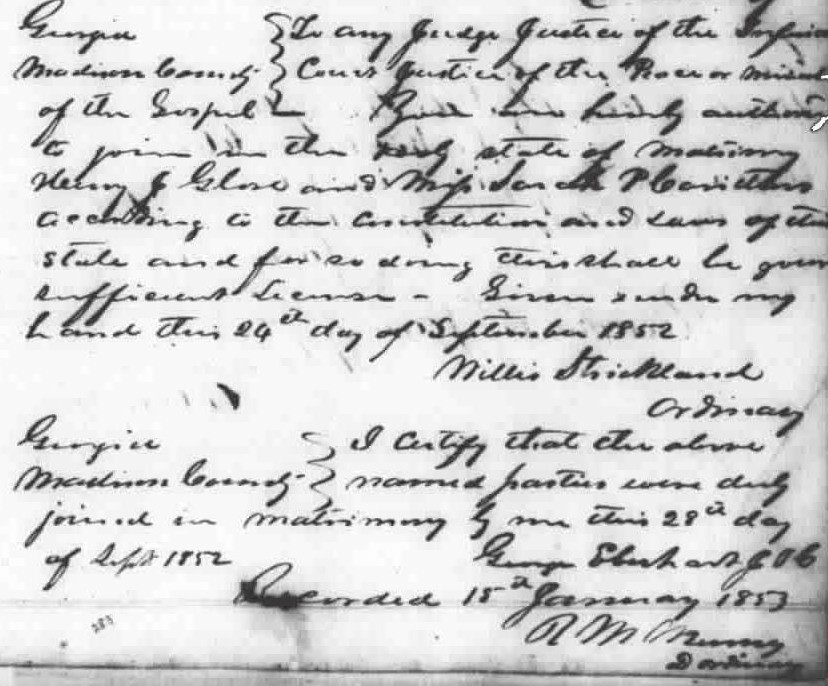 Georgia } To any Judge Justice of the Inferior
Madison County } Court Justice of the Peace or minist
of the Gospel You are hereby authoriz
to join in the holy state of matrimony
Henry J Glove and Miss Sarah P Carithers
according to the constitution and Laws of this
state and for so doing this shall be your
sufficient License - Given under my
hand this 24th day of September 1852
Willis Strickland
Ordinary
Georgia } I certify that the above
Madison County } named parties were duly
joined in matrimony by me this 28th day
of Sept 1852 George Eberhart J I C
Recorded 15th January 1853
R M
D ordinary
283